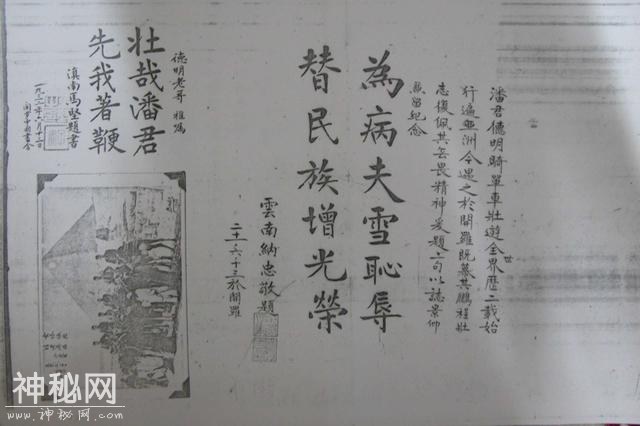 潘君德明騎單車壯遊全界歷二載始
世
行遍亞洲今遇之於開羅既慕其鵬程壯
志復佩其無畏精神爰題二句以誌景仰
兼留紀念
為病夫雪恥辱
替民族增光榮
雲南納忠敬題
二十一、六、十三於開羅
德明老哥 雅屬
壯哉潘君
先我著鞭
滇南馬堅題書
神秘网
www.神秘网.com